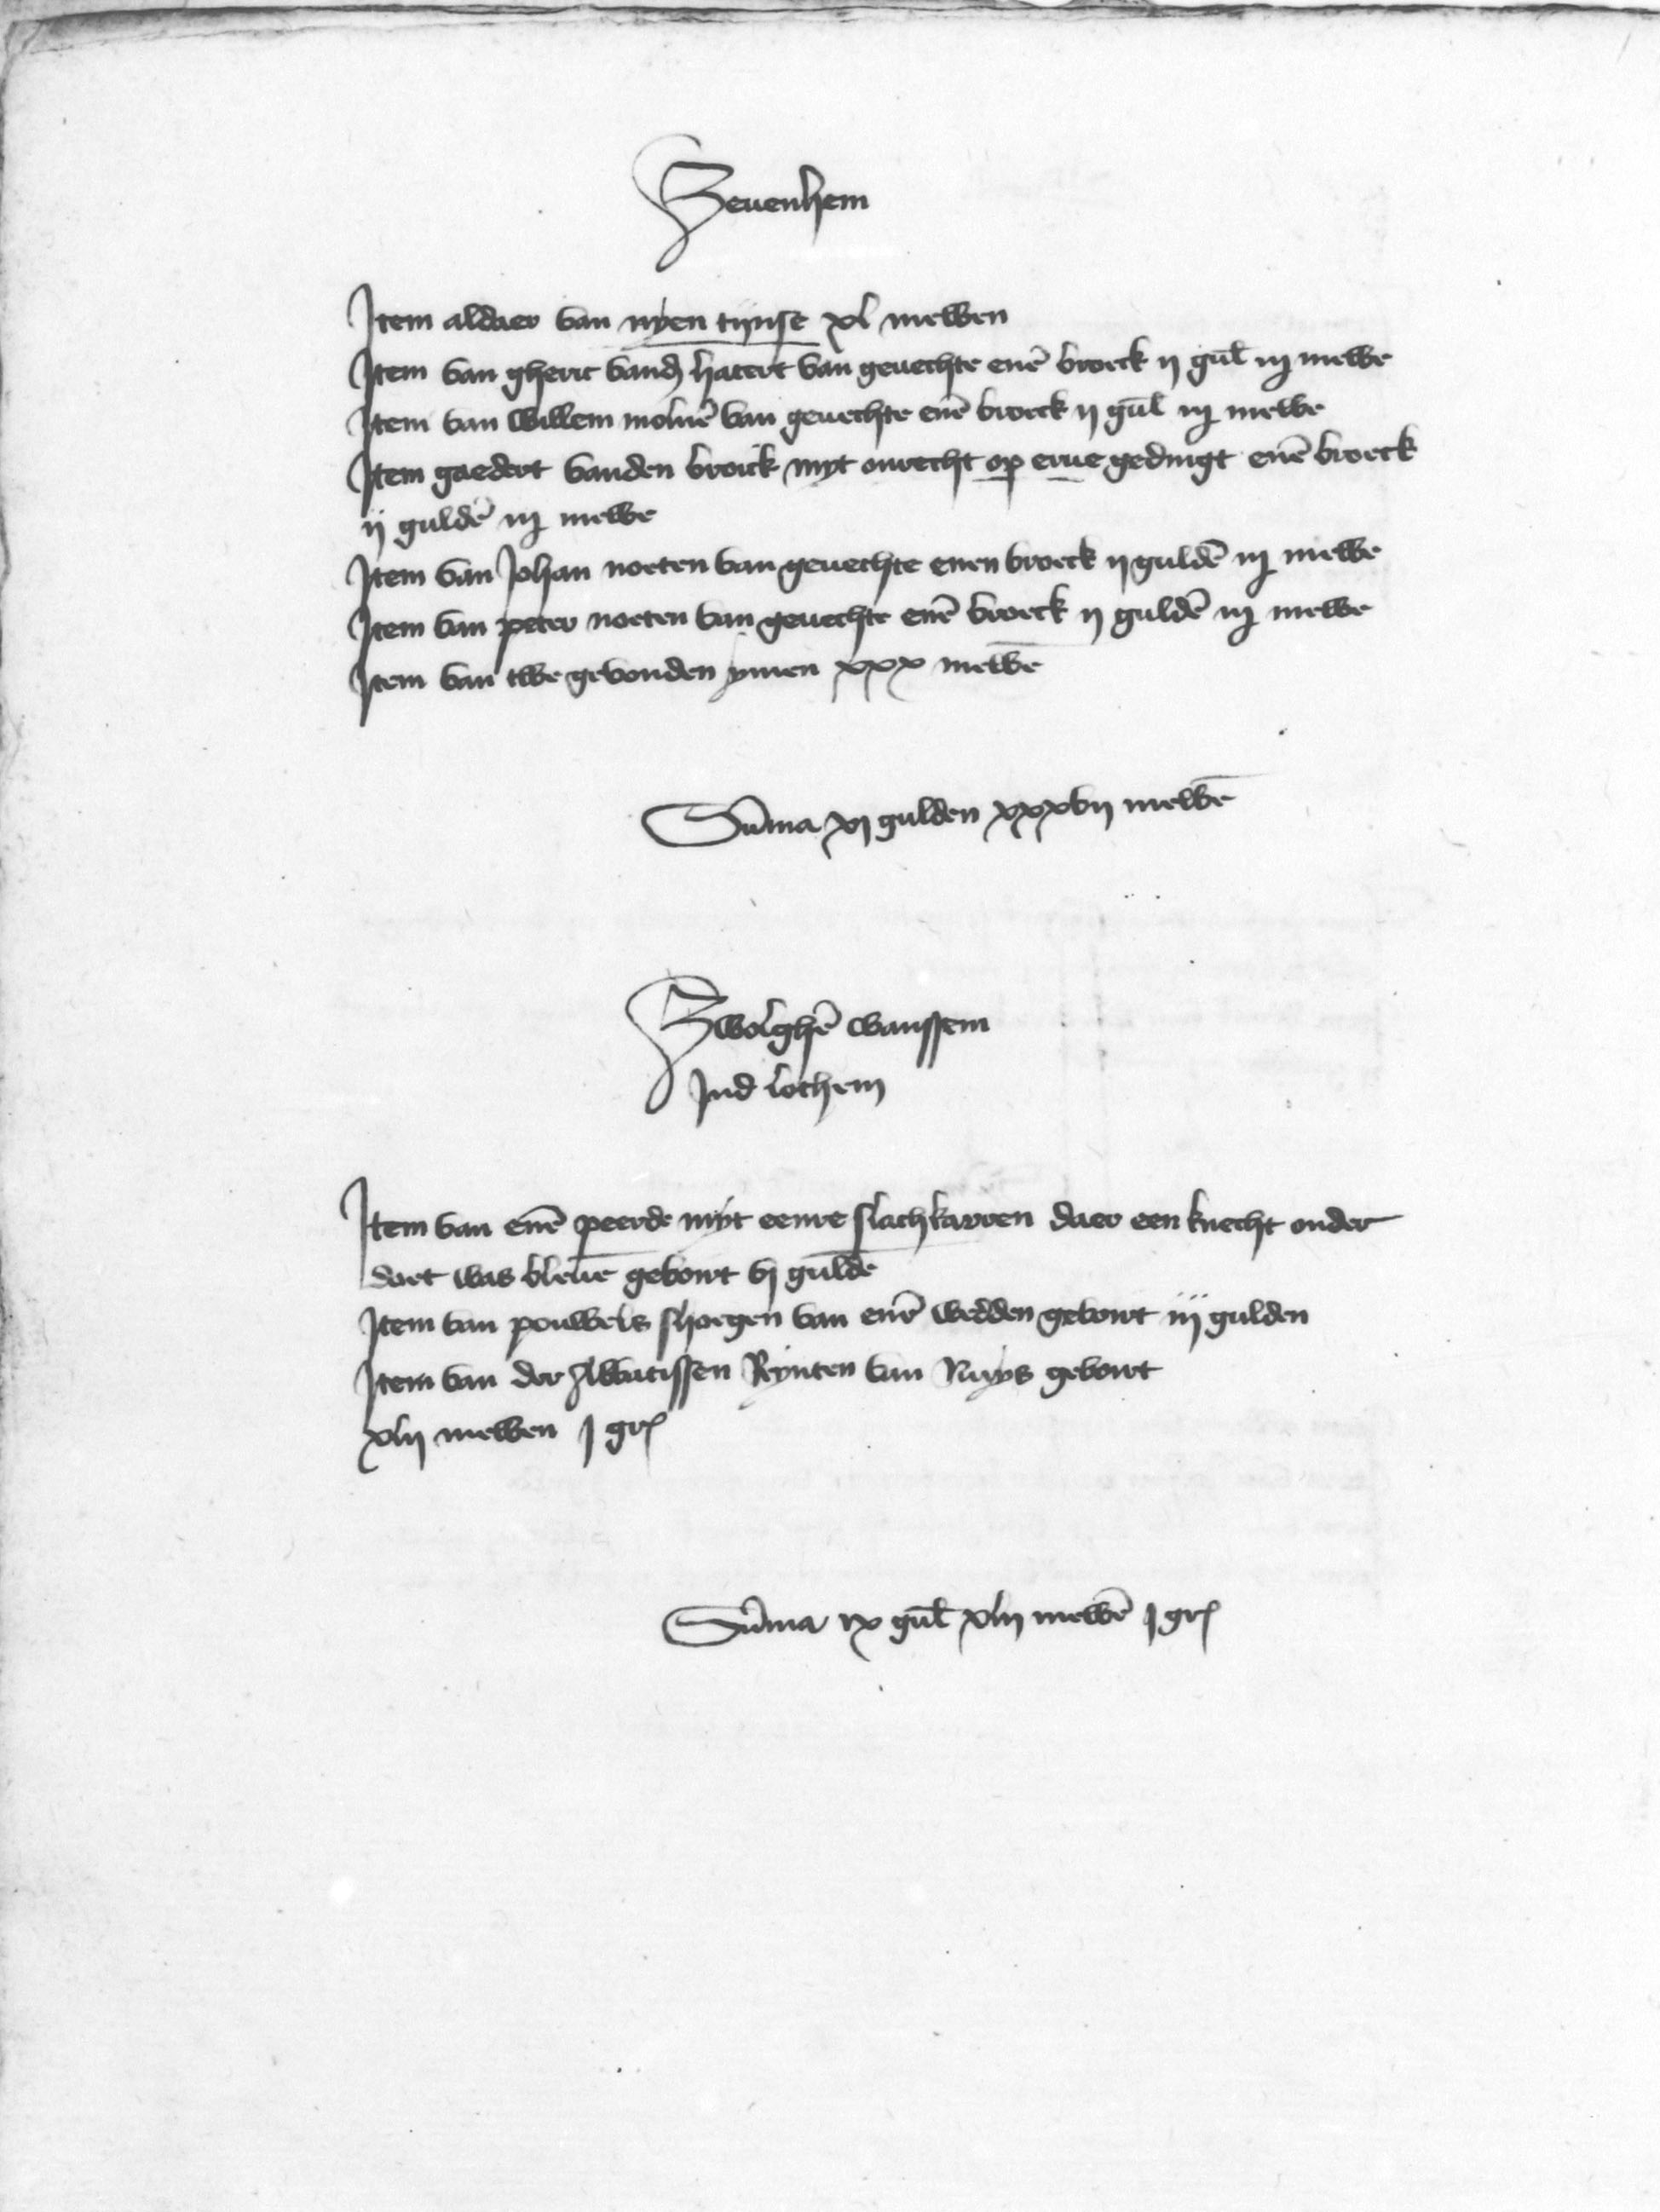 Zeuenhem
Item aldaer van nyen tijnse xl mewen
Item van gherit vand hatert van geuechte enē broeck ij gul iij mewe
Item van willem molnē van geuechte enē broeck ij gul iij mewe
Item gaedert vanden broick myt onrecht op erue gedingt enē broeck
ij guldē iij mewe
Item van Johan noeten van geuechte enen broeck ij guldē iij mewe
Item van peter noeten van geuechte enē broeck ij guldē iij mewe
Item van twe gevonden ymen xxx mewē
Sūma xj gulden xxxvij mewē
Zwolghē wanssem
Ind lothem
Item van enē peerde myt eenre slachkarren daer een knecht onder
doet was bleuē gebort vj guldē
Item van pouwels van enre wedden gebort iij gulden
Item van der Abbatissen Rynten van Nuys gebort
xlij mewen j gr
Sūma ix gul xlij mewē j gr